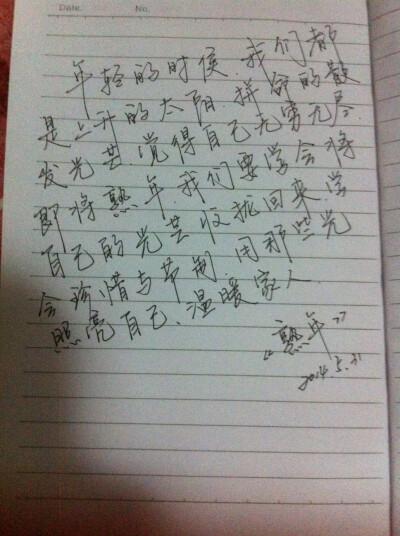 Date. No.
年轻的时侯,我们都
是上升的太阳,拼命的散
发光芒,觉得自己无穷无尽.
即将熟年,我们要学会将
自己的光芒收拢回来,学
会珍惜与节制,用那些光
照亮自己、温暖家人.
《熟年》
2014.5.31